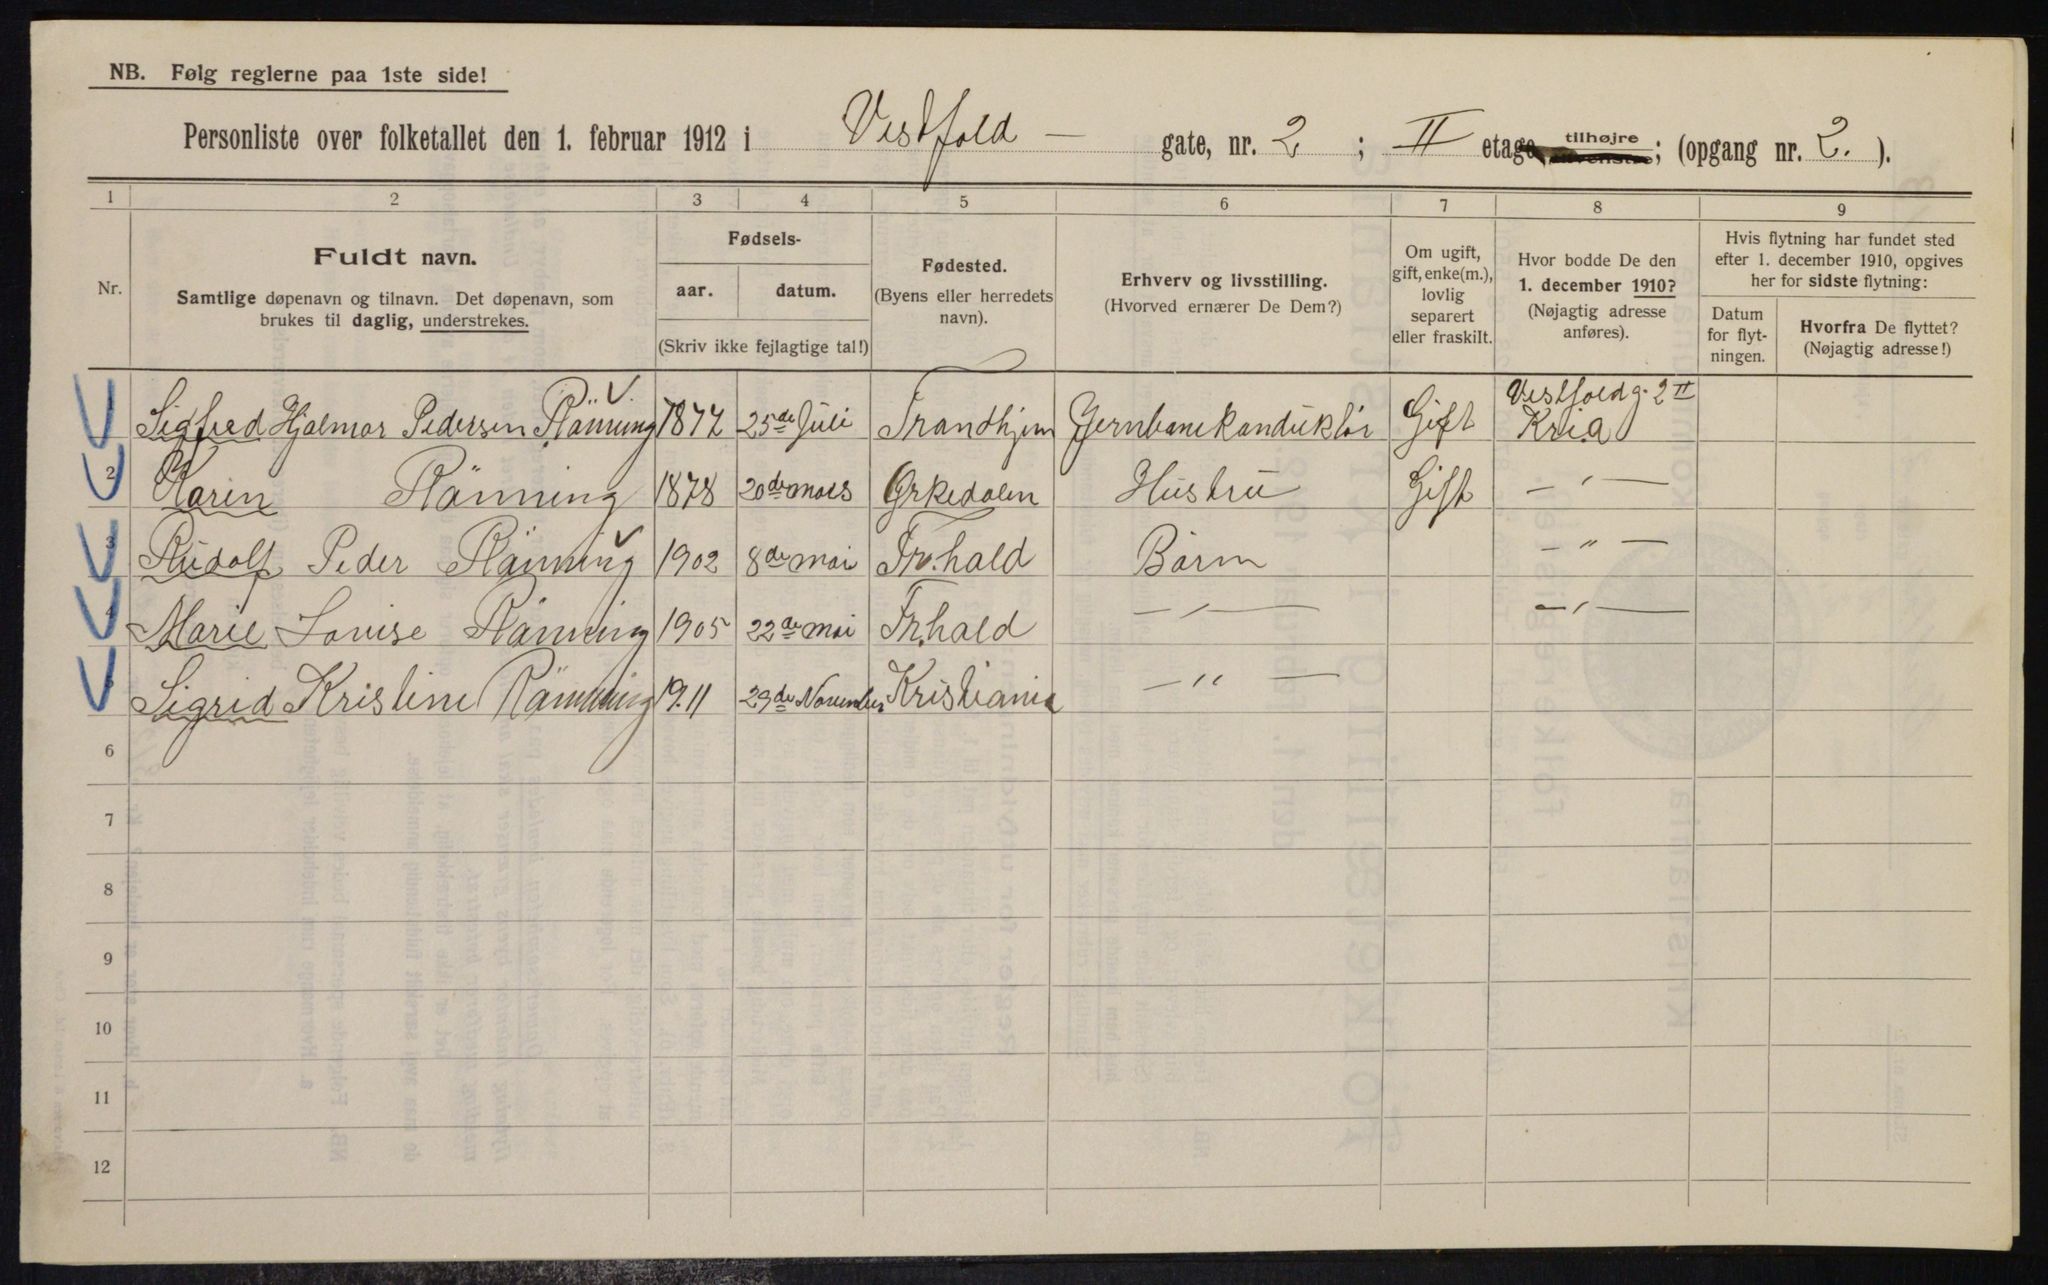 NB. Følg reglerne paa 1ste side!
Personliste over folketallet den 1. februar 1912 i Vestfold — gate, nr. 2 ; II etage, tilhøjre tilvenstre; (opgang nr. 2. ).
1 2 3 4 5 6 7 8 9
Nr.
Fuldt navn.
Samtlige døpenavn og tilnavn. Det døpenavn, som
brukes til daglig, understrekes.
Fødsels-
aar. datum.
(Skriv ikke fejlagtige tal!)
Fødested.
(Byens eller herredets
navn).
Erhverv og livsstilling.
(Hvorved ernærer De Dem?)
Om ugift,
gift, enke(m.),
lovlig
separert
eller fraskilt.
Hvor bodde De den
1. december 1910?
(Nøjagtig adresse
anføres).
Hvis flytning har fundet sted
efter 1. december 1910, opgives
her for sidste flytning:
Datum
for flyt-
ningen.
Hvorfra De flyttet?
(Nøjagtig adresse!)
Vestfoldg. 2 II
Sigfred Hjalmar Pedersen Rönning 1877 25de Juli Trondhjem Jernbanekonduktör Gift Kria
2 Karin Rönning 1878 20de mars Orkedalen Hustru Gift — " —
3 Rudolf Peder Rönning 1902 8de mai Fr.hald Börn — " —
4 Marie Lovise Rönning 1905 22de mai Fr.hald — " — — " —
5 Sigrid Kristine Rönning 1911 29de November Kristiania — " —
6
7
8
9
10
11
12